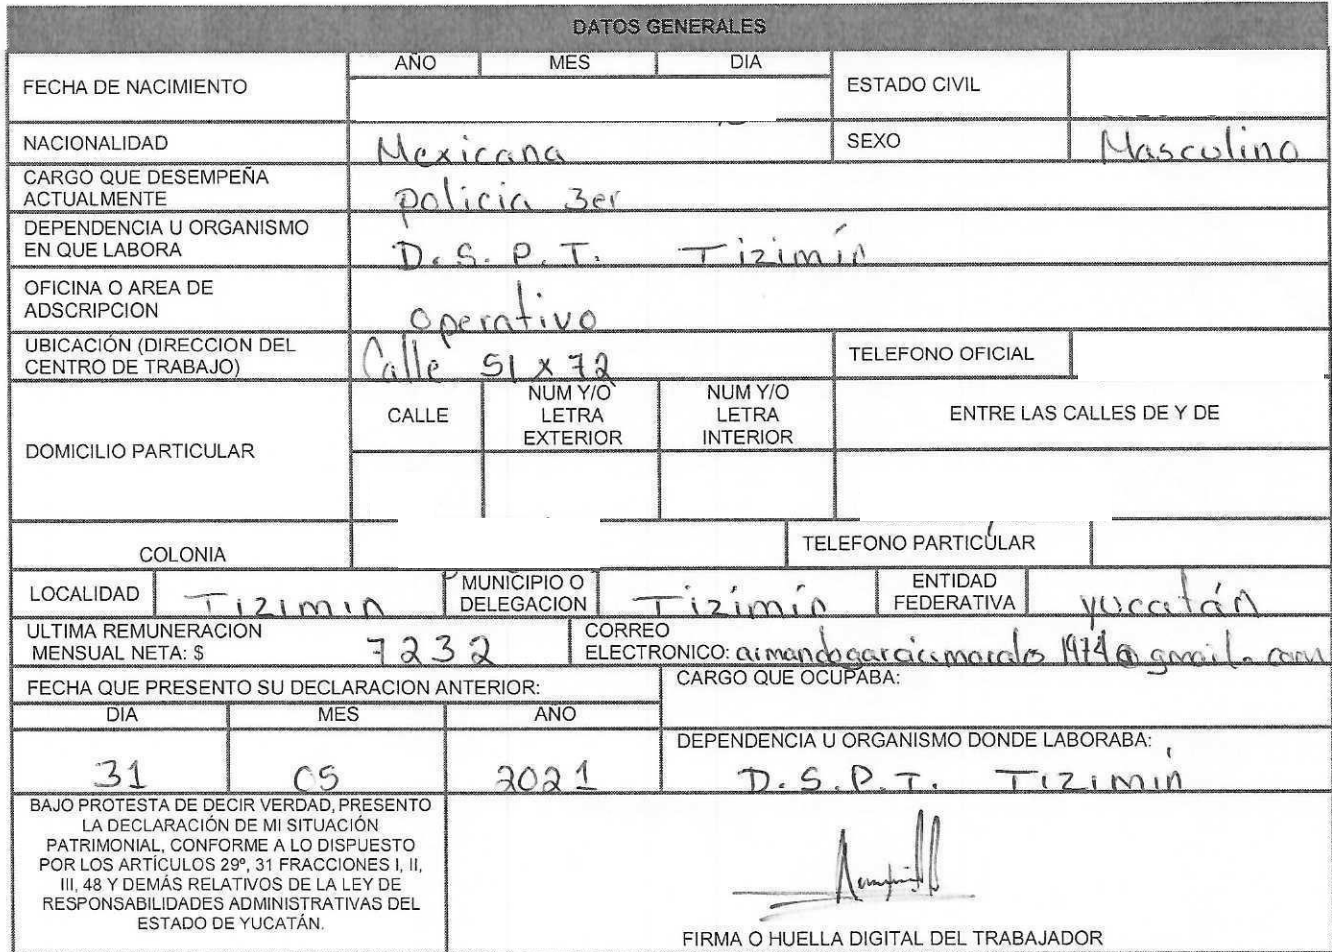 DATOS GENERALES
FECHA DE NACIMIENTO
AÑO MES DIA
ESTADO CIVIL
NACIONALIDAD Mexicana SEXO Masculino
CARGO QUE DESEMPEÑA
ACTUALMENTE
policia 3er
DEPENDENCIA U ORGANISMO
EN QUE LABORA
D.S.P.T. Tizimín
OFICINA O AREA DE
ADSCRIPCION
operativo
UBICACIÓN (DIRECCION DEL
CENTRO DE TRABAJO)
Calle 51 x 72
TELEFONO OFICIAL
DOMICILIO PARTICULAR
CALLE
NUM Y/O
LETRA
EXTERIOR
NUM Y/O
LETRA
INTERIOR
ENTRE LAS CALLES DE Y DE
COLONIA
TELEFONO PARTICULAR
LOCALIDAD Tizimin
MUNICIPIO O
DELEGACION
Tizimín
ENTIDAD
FEDERATIVA
yucatán
ULTIMA REMUNERACION
MENSUAL NETA: $ 7232
CORREO
ELECTRONICO: armandogarciamorales1974@gmail.com
FECHA QUE PRESENTO SU DECLARACION ANTERIOR:
CARGO QUE OCUPABA:
DIA MES ANO
31 05 2021
DEPENDENCIA U ORGANISMO DONDE LABORABA:
D.S.P.T. Tizimín
BAJO PROTESTA DE DECIR VERDAD, PRESENTO
LA DECLARACIÓN DE MI SITUACIÓN
PATRIMONIAL, CONFORME A LO DISPUESTO
POR LOS ARTÍCULOS 29º, 31 FRACCIONES I, II,
III, 48 Y DEMÁS RELATIVOS DE LA LEY DE
RESPONSABILIDADES ADMINISTRATIVAS DEL
ESTADO DE YUCATÁN.
FIRMA O HUELLA DIGITAL DEL TRABAJADOR